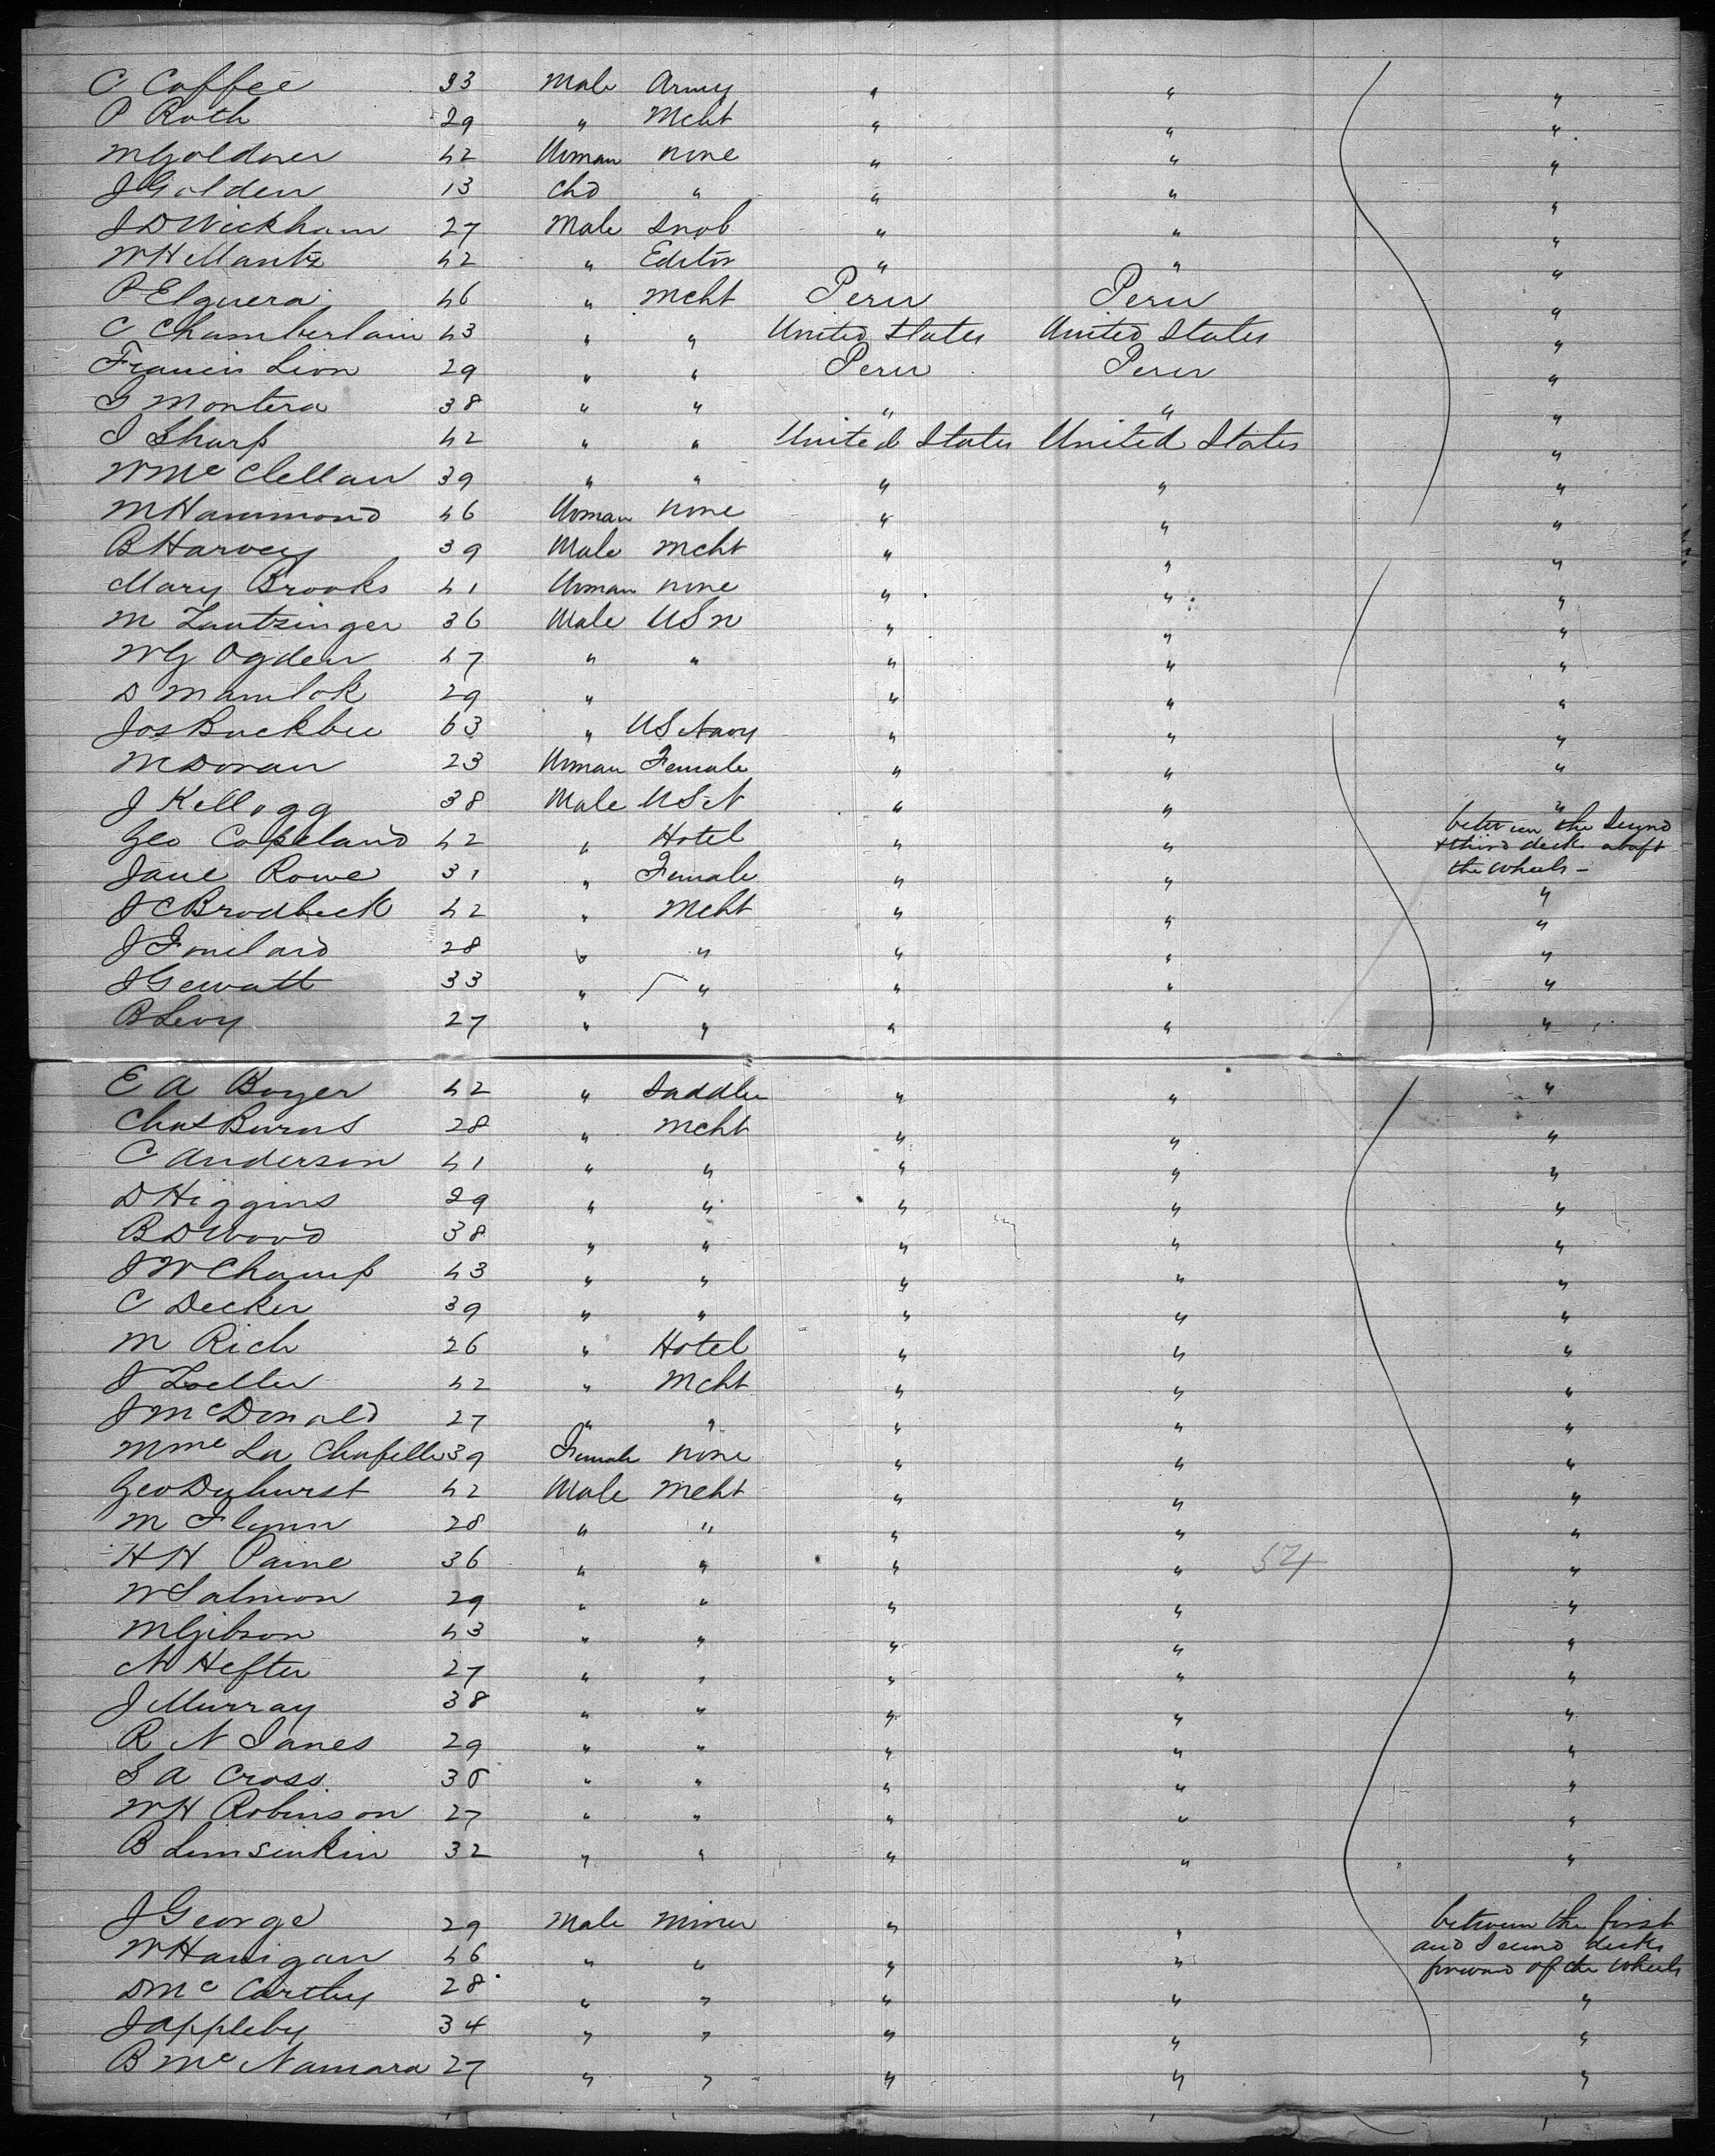 C Coffee 33 Male Army " " "
P Roth 29 " Mcht " " "
M Goldner 42 Woman none " " "
J Golden 13 Chd " " " "
J D Wickham 27 Male Snob " " "
W H Mantz 42 " Editor " " "
P Elguera 46 " Mcht Peru Peru "
C Chamberlain 43 " " United States United States "
Francis Lion 29 " " Peru Peru "
G Montera 38 " " " " "
J Sharp 42 " " United States United States "
W Mc Clellan 39 " " " " "
M Hammond 46 Woman none " " "
B Harvey 39 Male Mcht " " "
Mary Brooks 41 Woman none " " "
M Lautzinger 36 Male USN " " "
W G Ogden 47 " " " " "
D Mamlok 29 " " " "
Jos Buckbee 63 " US Navy " " "
M Doran 23 Woman Female " " "
J Kellogg 38 Male USN " " "
Geo Copeland 42 " Hotel " " between the Second
& third deck abaft
Jane Rowe 31 " Female " " the wheels - "
J C Brodbeck 42 " Mcht " " "
J Fouilard 28 " " " " "
J Gewatt 33 " " " " "
B Levy 27 " " " " "
E A Boyer 42 " Saddler " " "
Chas Burns 28 " Mcht " " "
C Anderson 41 " " " " "
D Higgins 29 " " " " "
B D Wood 38 " " " " "
J W Champ 43 " " " " "
C Decker 39 " " " " "
M Rich 26 " Hotel " " "
J Zoeller 42 " Mcht " " "
J McDonald 27 " " " " "
Mme La Chapelle 39 Female none " " "
Geo Dyhurst 42 Male Mcht " " "
M Flynn 28 " " " " "
H H Paine 36 " " " " 54 "
W Salmon 29 " " " " "
M Gibson 43 " " " " "
N Hefter 27 " " " " "
J Murray 38 " " " " "
R N Janes 29 " " " " "
S A Cross 36 " " " " "
W H Robinson 27 " " " " "
B Limsinkin 32 " " " " "
J George 29 Male Miner " " between the first
and Second decks
W Hanigan 46 " " " " forward of the wheels
D Mc Carthy 28 " " " " "
J Appleby 34 " " " " "
B Mc Namara 27 " " " " "